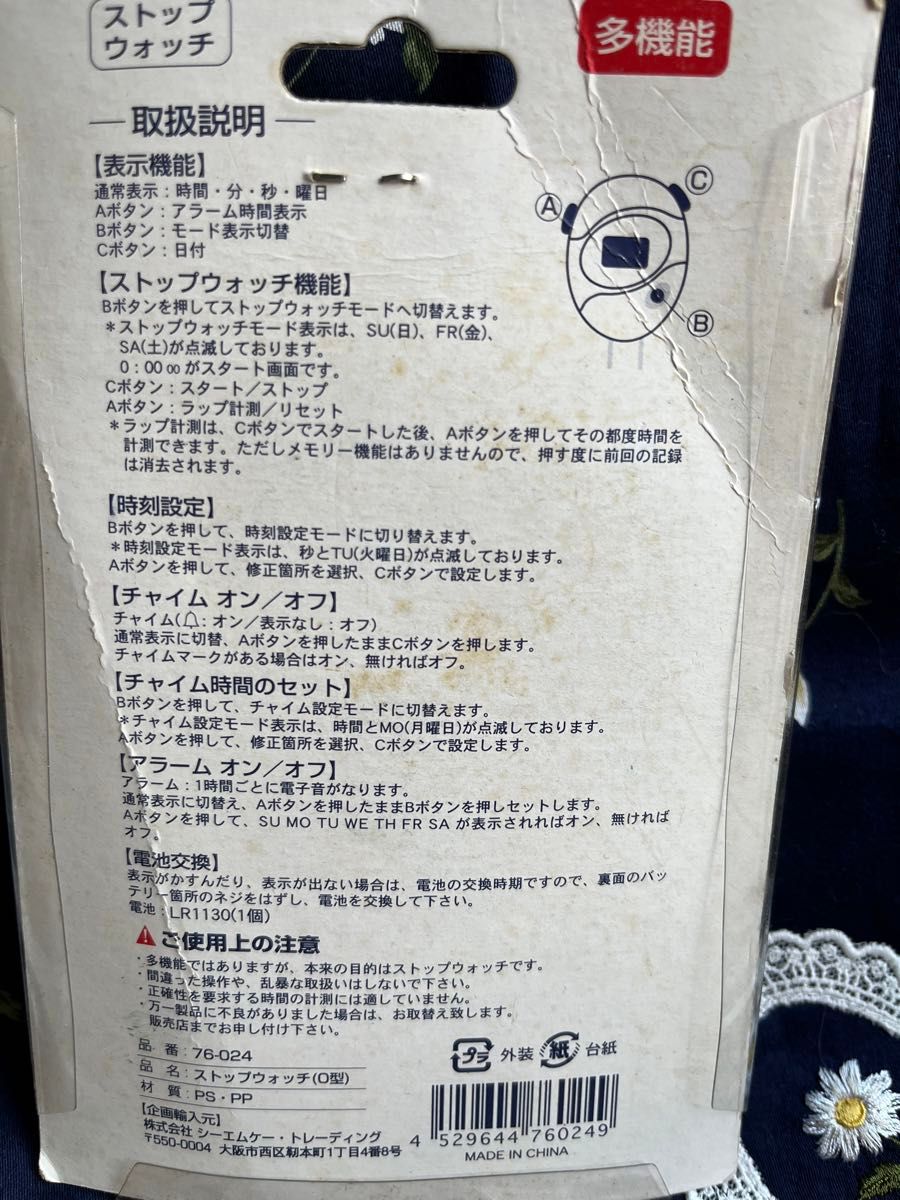 ストップ
ウォッチ
多機能
取扱説明
【表示機能】
通常表示：時間・分・秒・曜日
Aボタン：アラーム時間表示
Bボタン：モード表示切替
Cボタン：日付
A
C
B
【ストップウォッチ機能】
Bボタンを押してストップウォッチモードへ切替えます。
＊ストップウォッチモード表示は、SU(日)、FR(金)、
SA(土)が点滅しております。
0：00 00 がスタート画面です。
Cボタン：スタート／ストップ
Aボタン：ラップ計測／リセット
＊ラップ計測は、Cボタンでスタートした後、Aボタンを押してその都度時間を
計測できます。ただしメモリー機能はありませんので、押す度に前回の記録
は消去されます。
【時刻設定】
Bボタンを押して、時刻設定モードに切り替えます。
＊時刻設定モード表示は、秒とTU(火曜日)が点滅しております。
Aボタンを押して、修正箇所を選択、Cボタンで設定します。
【チャイム オン／オフ】
チャイム(🔔：オン／表示なし：オフ)
通常表示に切替、Aボタンを押したままCボタンを押します。
チャイムマークがある場合はオン、無ければオフ。
【チャイム時間のセット】
Bボタンを押して、チャイム設定モードに切替えます。
＊チャイム設定モード表示は、時間とMO(月曜日)が点滅しております。
Aボタンを押して、修正箇所を選択、Cボタンで設定します。
【アラーム オン／オフ】
アラーム：1時間ごとに電子音がなります。
通常表示に切替え、Aボタンを押したままBボタンを押しセットします。
Aボタンを押して、SU MO TU WE TH FR SA が表示されればオン、無ければ
オフ。
【電池交換】
表示がかすんだり、表示が出ない場合は、電池の交換時期ですので、裏面のバッ
テリー箇所のネジをはずし、電池を交換して下さい。
電池：LR1130(1個)
ご使用上の注意
・多機能ではありますが、本来の目的はストップウォッチです。
・間違った操作や、乱暴な取扱いはしないで下さい。
・正確性を要求する時間の計測には適していません。
・万一製品に不良がありました場合は、お取替え致します。
販売店までお申し付け下さい。
品 番：76-024
品 名：ストップウォッチ(O型)
材 質：PS・PP
【企画輸入元】
株式会社 シーエムケー・トレーディング
〒550-0004 大阪市西区靭本町1丁目4番8号
プラ 外装 紙 台紙
4 529644 760249
MADE IN CHINA